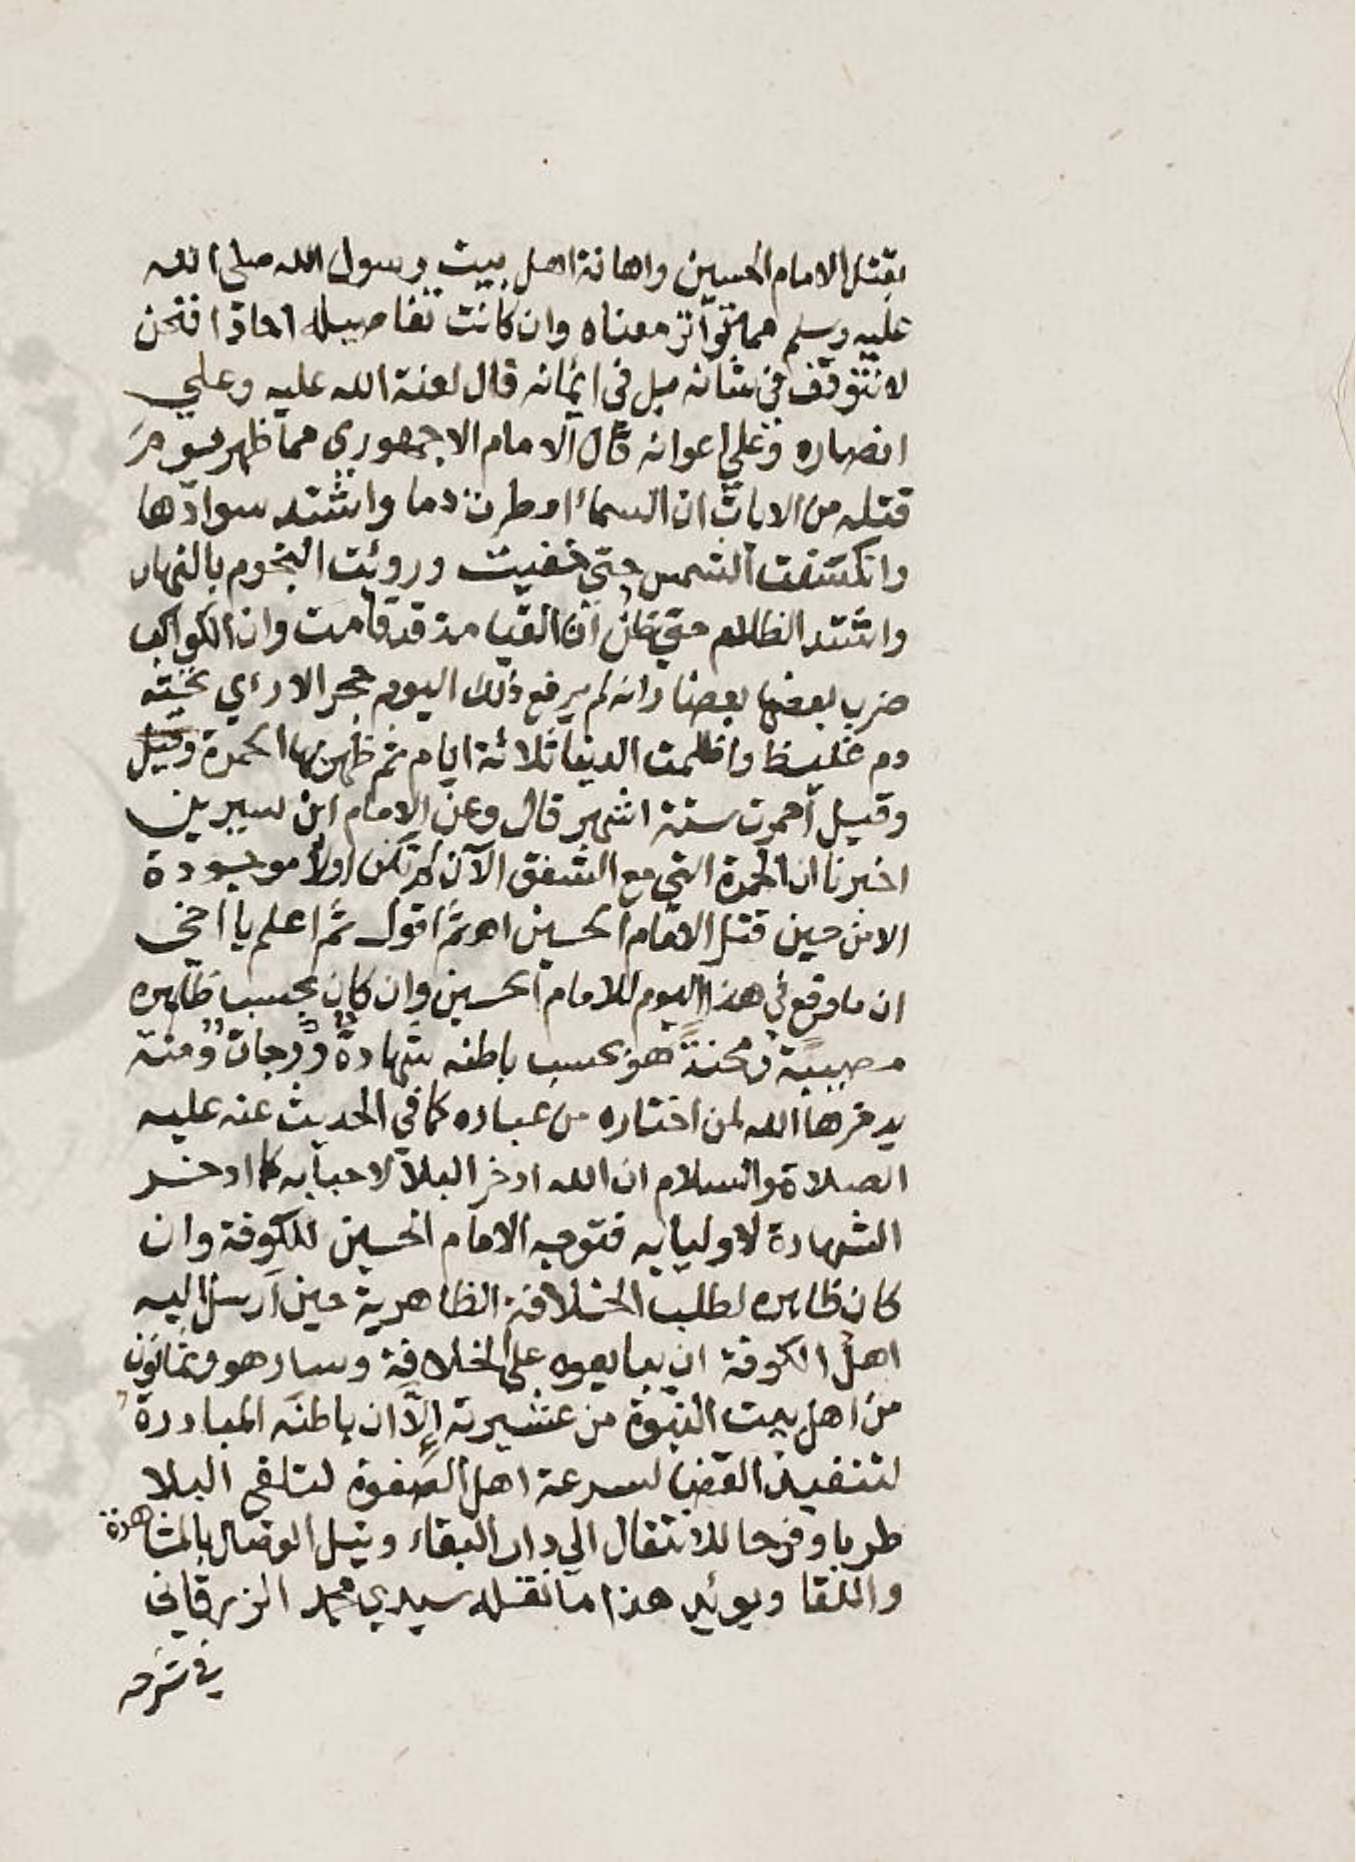 بقتل الامام الحسين واهانة اهل بيت رسول الله صلي الله
عليه وسلم مما تواتر معناه وان كانت تفاصيله احادا فنحن
لا نتوقف في شانه بل في ايمانه قال لعنة الله عليه وعلي
انصاره وعلي اعوانه قال الامام الاجمهوري مما ظهر يوم
قتله من الايات ان السماء امطرت دما واشتد سوادها
وانكسفت الشمس حتي خفيت ورويت النجوم بالنهار
واشتد الظلام حتي ظن ان القيامة قد قامت وان الكواكب
ضرب بعضها بعضا وانه لم يرفع ذلك اليوم حجر الا رءي تحته
دم غليظ واظلمت الدنيا ثلاثة ايام ثم ظهر بها الحمرة وقيل
وقيل احمرت ستة اشهر قال وعن الامام ابن سيرين
اخبرنا ان الحمرة التي مع الشفق الآن لم تكن اولا موجودة
الا من حين قتل الامام الحسين اه ثم اقول ثم اعلم يا اخي
ان ما وقع في هذا اليوم للامام الحسين وان كان بحسب ظاهره
مصيبة ومحنة هو بحسب باطنه شهادة ودرجات ومنة
يدخرها الله لمن اختاره من عباده كما في الحديث عنه عليه
الصلاة والسلام ان الله ادخر البلآ لاحبابه كما ادخر
الشهادة لاوليايه فتوجه الامام الحسين للكوفة وان
كان ظاهره لطلب الخلافة الظاهرية حين ارسل اليه
اهل الكوفة ان يبايعوه علي الخلافة وسار هو وثمانون
من اهل بيت النبوة من عشيرته إلآ ان باطنه المبادرة
لتنفيذ القضا لسرعة اهل الصفوة لتلقي البلا
طربا وفرحا للانتقال الي دار البقاء ونيل الوصال بالمشاهدة
واللقا ويوئيد هذا ما نقله سيدي محمد الزرقاني
في شرحه